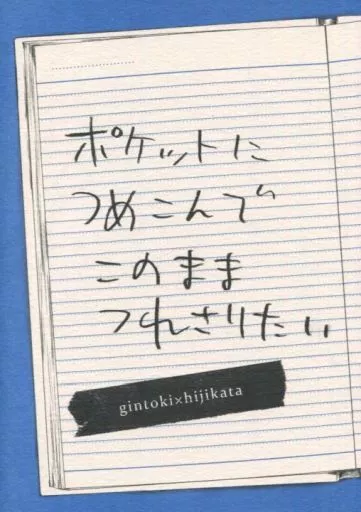 ポケットに
つめこんで
このまま
つれさりたい
gintoki×hijikata